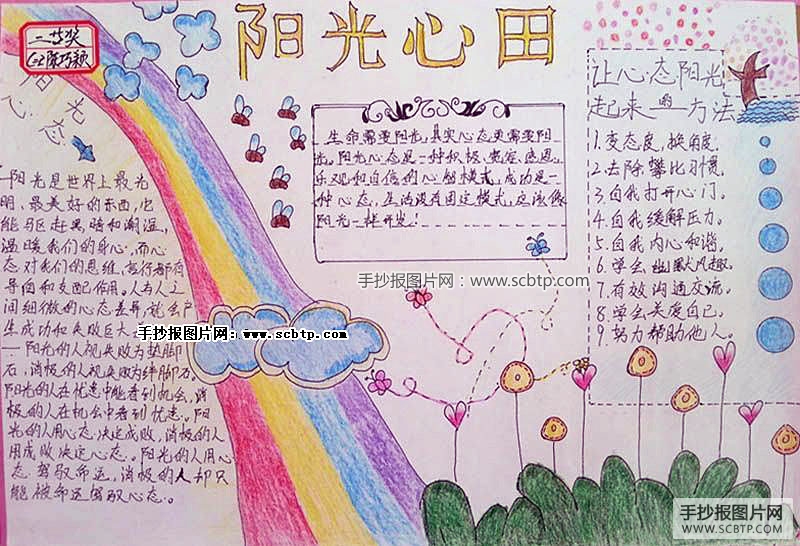 阳光心田
二等奖
阳光
心态
阳光是世界上最光
明、最美好的东西,它
能驱赶黑暗和潮湿,
温暖我们的身心,而心
态对我们的思维、言行都有
导向和支配作用。人与人之
间细微的心态差异,就会产
生成功和失败巨大
阳光的人视失败为垫脚
石,消极的人视失败为绊脚石。
阳光的人在忧患中能看到机会,消
极的人在机会中看到忧患。阳
光的人用心态决定成败,消极的人
用成败决定心态。阳光的人用心
态驾驭命运,消极的人却只
能被命运驾驭心态。
生命需要阳光,其实心态更需要阳
光。阳光心态是一种积极、宽容、感恩、
乐观和自信的心智模式,成功是一
种心态,生活没有固定模式,应该像
阳光一样开发!
让心态阳光
起来的方法
1.变态度,换角度.
2.去除攀比习惯.
3.自我打开心门。
4.自我缓解压力。
5.自我内心和谐。
6.学会幽默风趣。
7.有效沟通交流。
8.学会关爱自己。
9.努力帮助他人。
手抄报图片网:www.scbtp.com
手抄报图片网:www.scbtp.com
手抄报图片网
WWW.SCBTP.COM